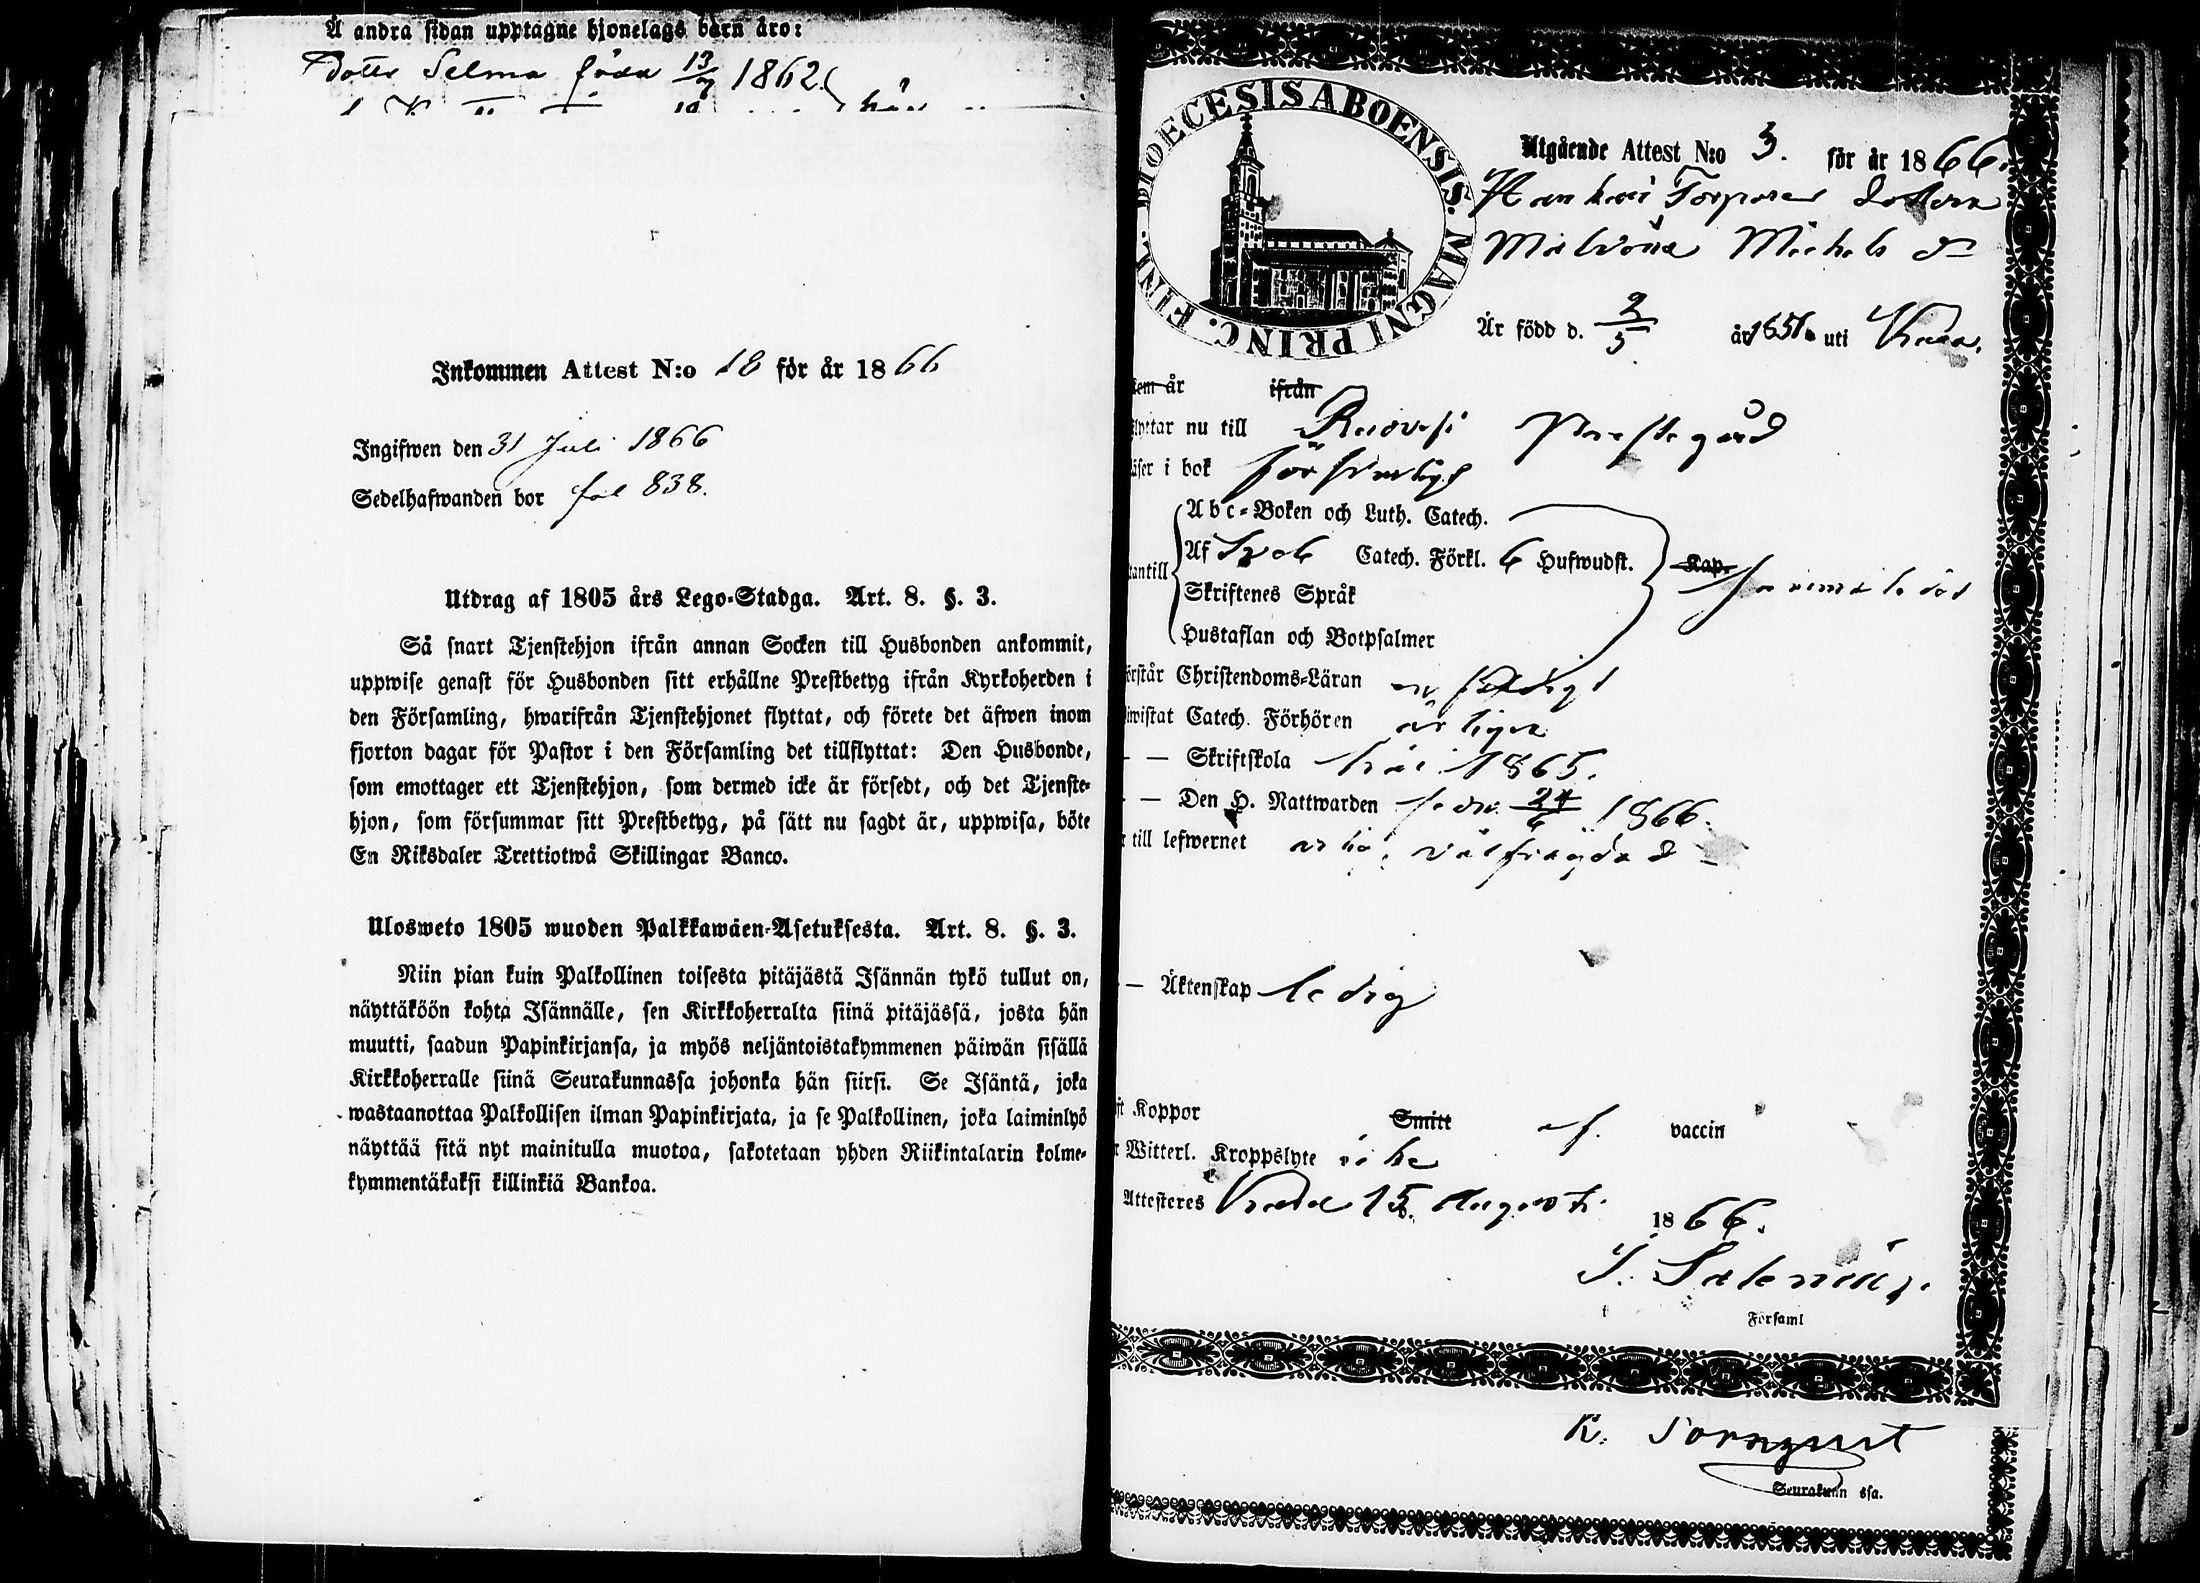 Å andra sidan upptagne hjonelags barn äro:
Dottr Selma föda 13/7 1862
Inkommen Attest N:o 18 för år 1866
Ingifwen den 31 Juli 1866
Sedelhafwanden bor fol 838.
Utdrag af 1805 års Lego-Stadga. Art. 8. §. 3.
Så snart Tjenstehjon ifrån annan Socken till Husbonden ankommit,
uppwise genast för Husbonden sitt erhållne Prestbetyg ifrån Kyrkoherden i
den Församling, hwarifrån Tjenstehjonet flyttat, och förete det äfwen inom
fjorton dagar för Pastor i den Församling det tillflyttat: Den Husbonde,
som emottager ett Tjenstehjon, som dermed icke är försedt, och det Tjenste-
hjon, som försummar sitt Prestbetyg, på sätt nu sagdt är, uppwisa, böte
En Riksdaler Trettiotwå Skillingar Banco.
Ulosweto 1805 wuoden Palkkawäen-Asetuksesta. Art. 8. §. 3.
Niin pian kuin Palkollinen toisesta pitäjästä Isännän tykö tullut on,
näyttäköön kohta Isännälle, sen Kirkkoherralta siinä pitäjässä, josta hän
muutti, saadun Papinkirjansa, ja myös neljäntoistakymmenen päiwän sisällä
Kirkkoherralle siinä Seurakunnassa johonka hän siirsi. Se Isäntä, joka
wastaanottaa Palkollisen ilman Papinkirjata, ja se Palkollinen, joka laiminlyö
näyttää sitä nyt mainitulla muotoa, sakotetaan yhden Riikintalarin kolme-
kymmentäkaksi killinkiä Bankoa.
DIOECESIS ABOENSIS. MAGNI PRINC. FINL.
Utgående Attest N:o 3. för år 1866.
Torpare dottern
Michels dr
Är född d. 2/5 år 1851 uti
em år ifrån
flyttar nu till Ruovesi Prestegård
läser i bok försvarligt
Abc-Boken och Luth. Catech.
Af Sveb Catech. Förkl. 6 Hufwudst. Kap.
tantill
Skriftenes Språk
Hustaflan och Botpsalmer
örstår Christendoms-Läran
iwistat Catech. Förhören årligen
— — Skriftskola här 1865.
— — Den H. Nattwarden sedn. 24/6 1866.
till lefwernet ärlig, välfrägdad
— — Äktenskap ledig
ft Koppor Smitt af vaccin
r Witterl. Kroppslyte icke
Attesteres 15 Augusti 1866.
Församl
K. Tornqvist
Seurakunn ssa.